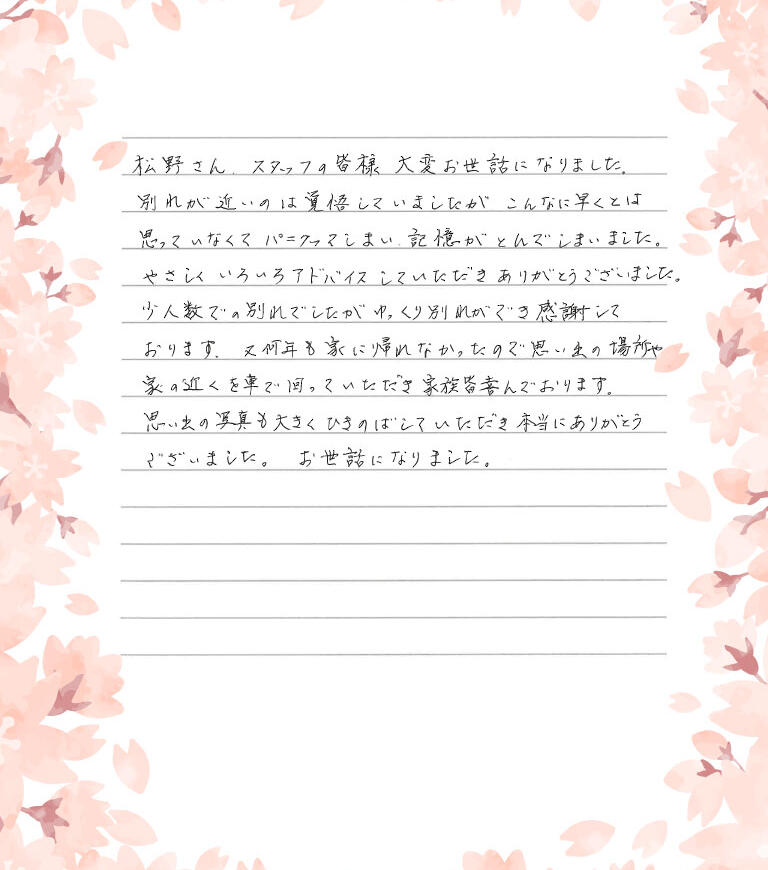 松野さん、スタッフの皆様 大変お世話になりました。
別れが近いのは覚悟していましたが こんなに早くとは
思っていなくて パニックってしまい、記憶がとんでしまいました。
やさしく いろいろアドバイスしていただき ありがとうございました。
少人数での別れでしたがゆっくり別れができ感謝して
おります。又何年も家に帰れなかったので思い出の場所や
家の近くを車で回っていただき家族皆喜んでおります。
思い出の写真も大きくひきのばしていただき本当にありがとう
ございました。 お世話になりました。